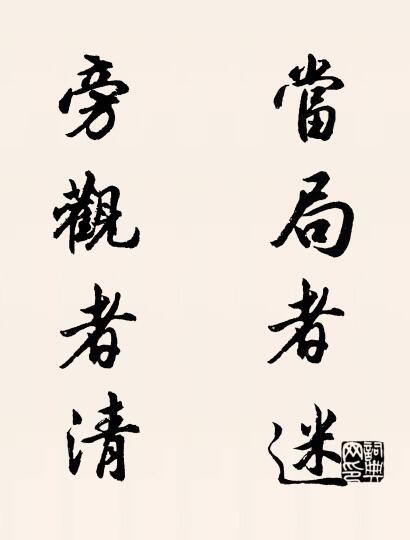 當局者迷
旁觀者清
詞典
网